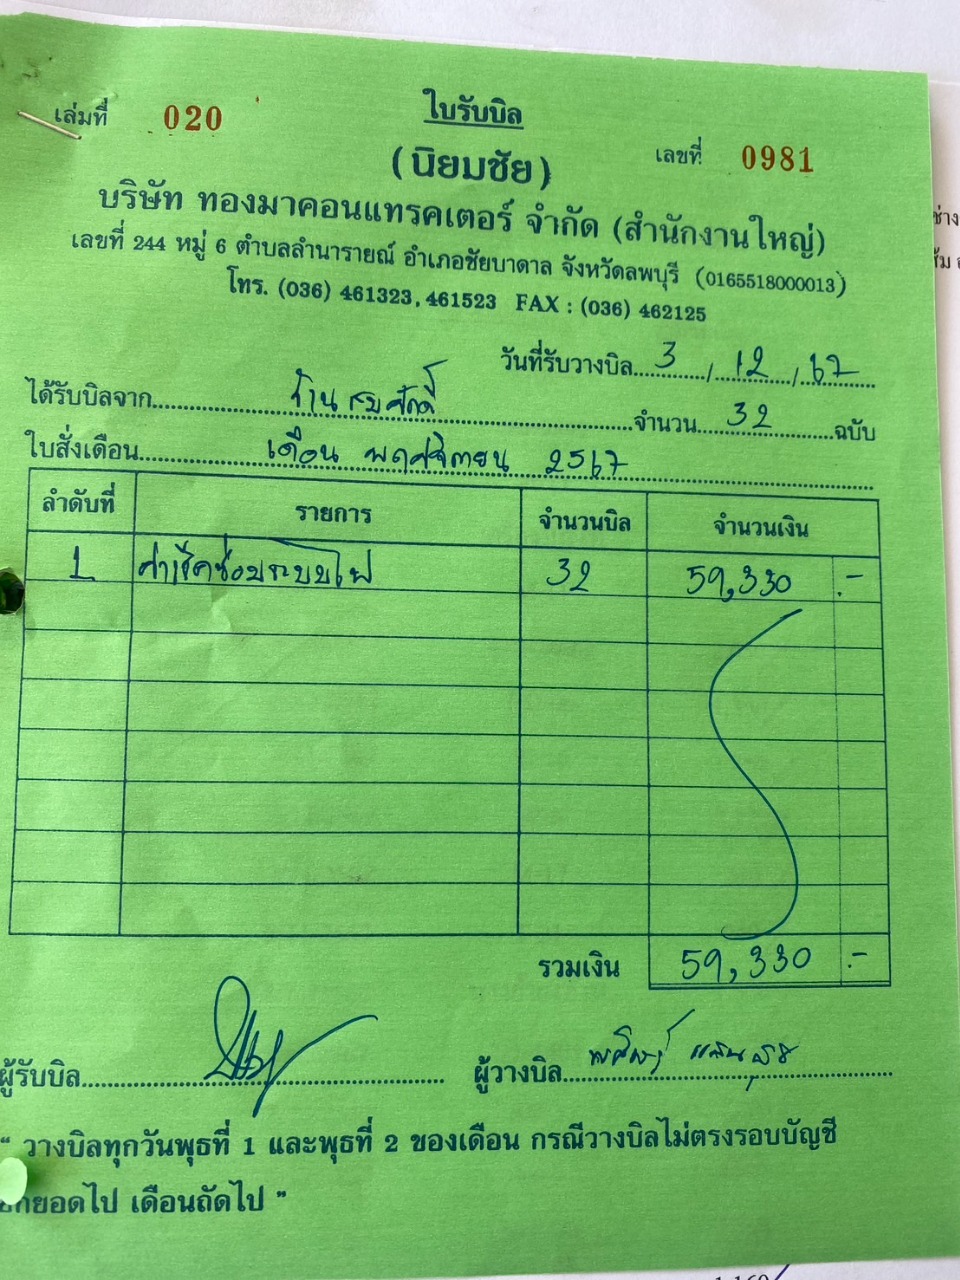 ใบรับบิล
เล่มที่ 020
เลขที่ 0981
(นิยมชัย)
บริษัท ทองมาคอนแทรคเตอร์ จำกัด (สำนักงานใหญ่)
เลขที่ 244 หมู่ 6 ตำบลลำนารายณ์ อำเภอชัยบาดาล จังหวัดลพบุรี (0165518000013)
โทร. (036) 461323, 461523 FAX : (036) 462125
วันที่รับวางบิล 3 / 12 / 67
ได้รับบิลจาก ร้านสมศักดิ์ จำนวน 32 ฉบับ
ใบสั่งเดือน เดือน พฤศจิกายน 2567
ลำดับที่ รายการ จำนวนบิล จำนวนเงิน
1 ค่าเช็คซ่อมระบบไฟ 32 59,330 .-
รวมเงิน 59,330 .-
ผู้รับบิล ผู้วางบิล
" วางบิลทุกวันพุธที่ 1 และพุธที่ 2 ของเดือน กรณีวางบิลไม่ตรงรอบบัญชี
ยอดไป เดือนถัดไป "